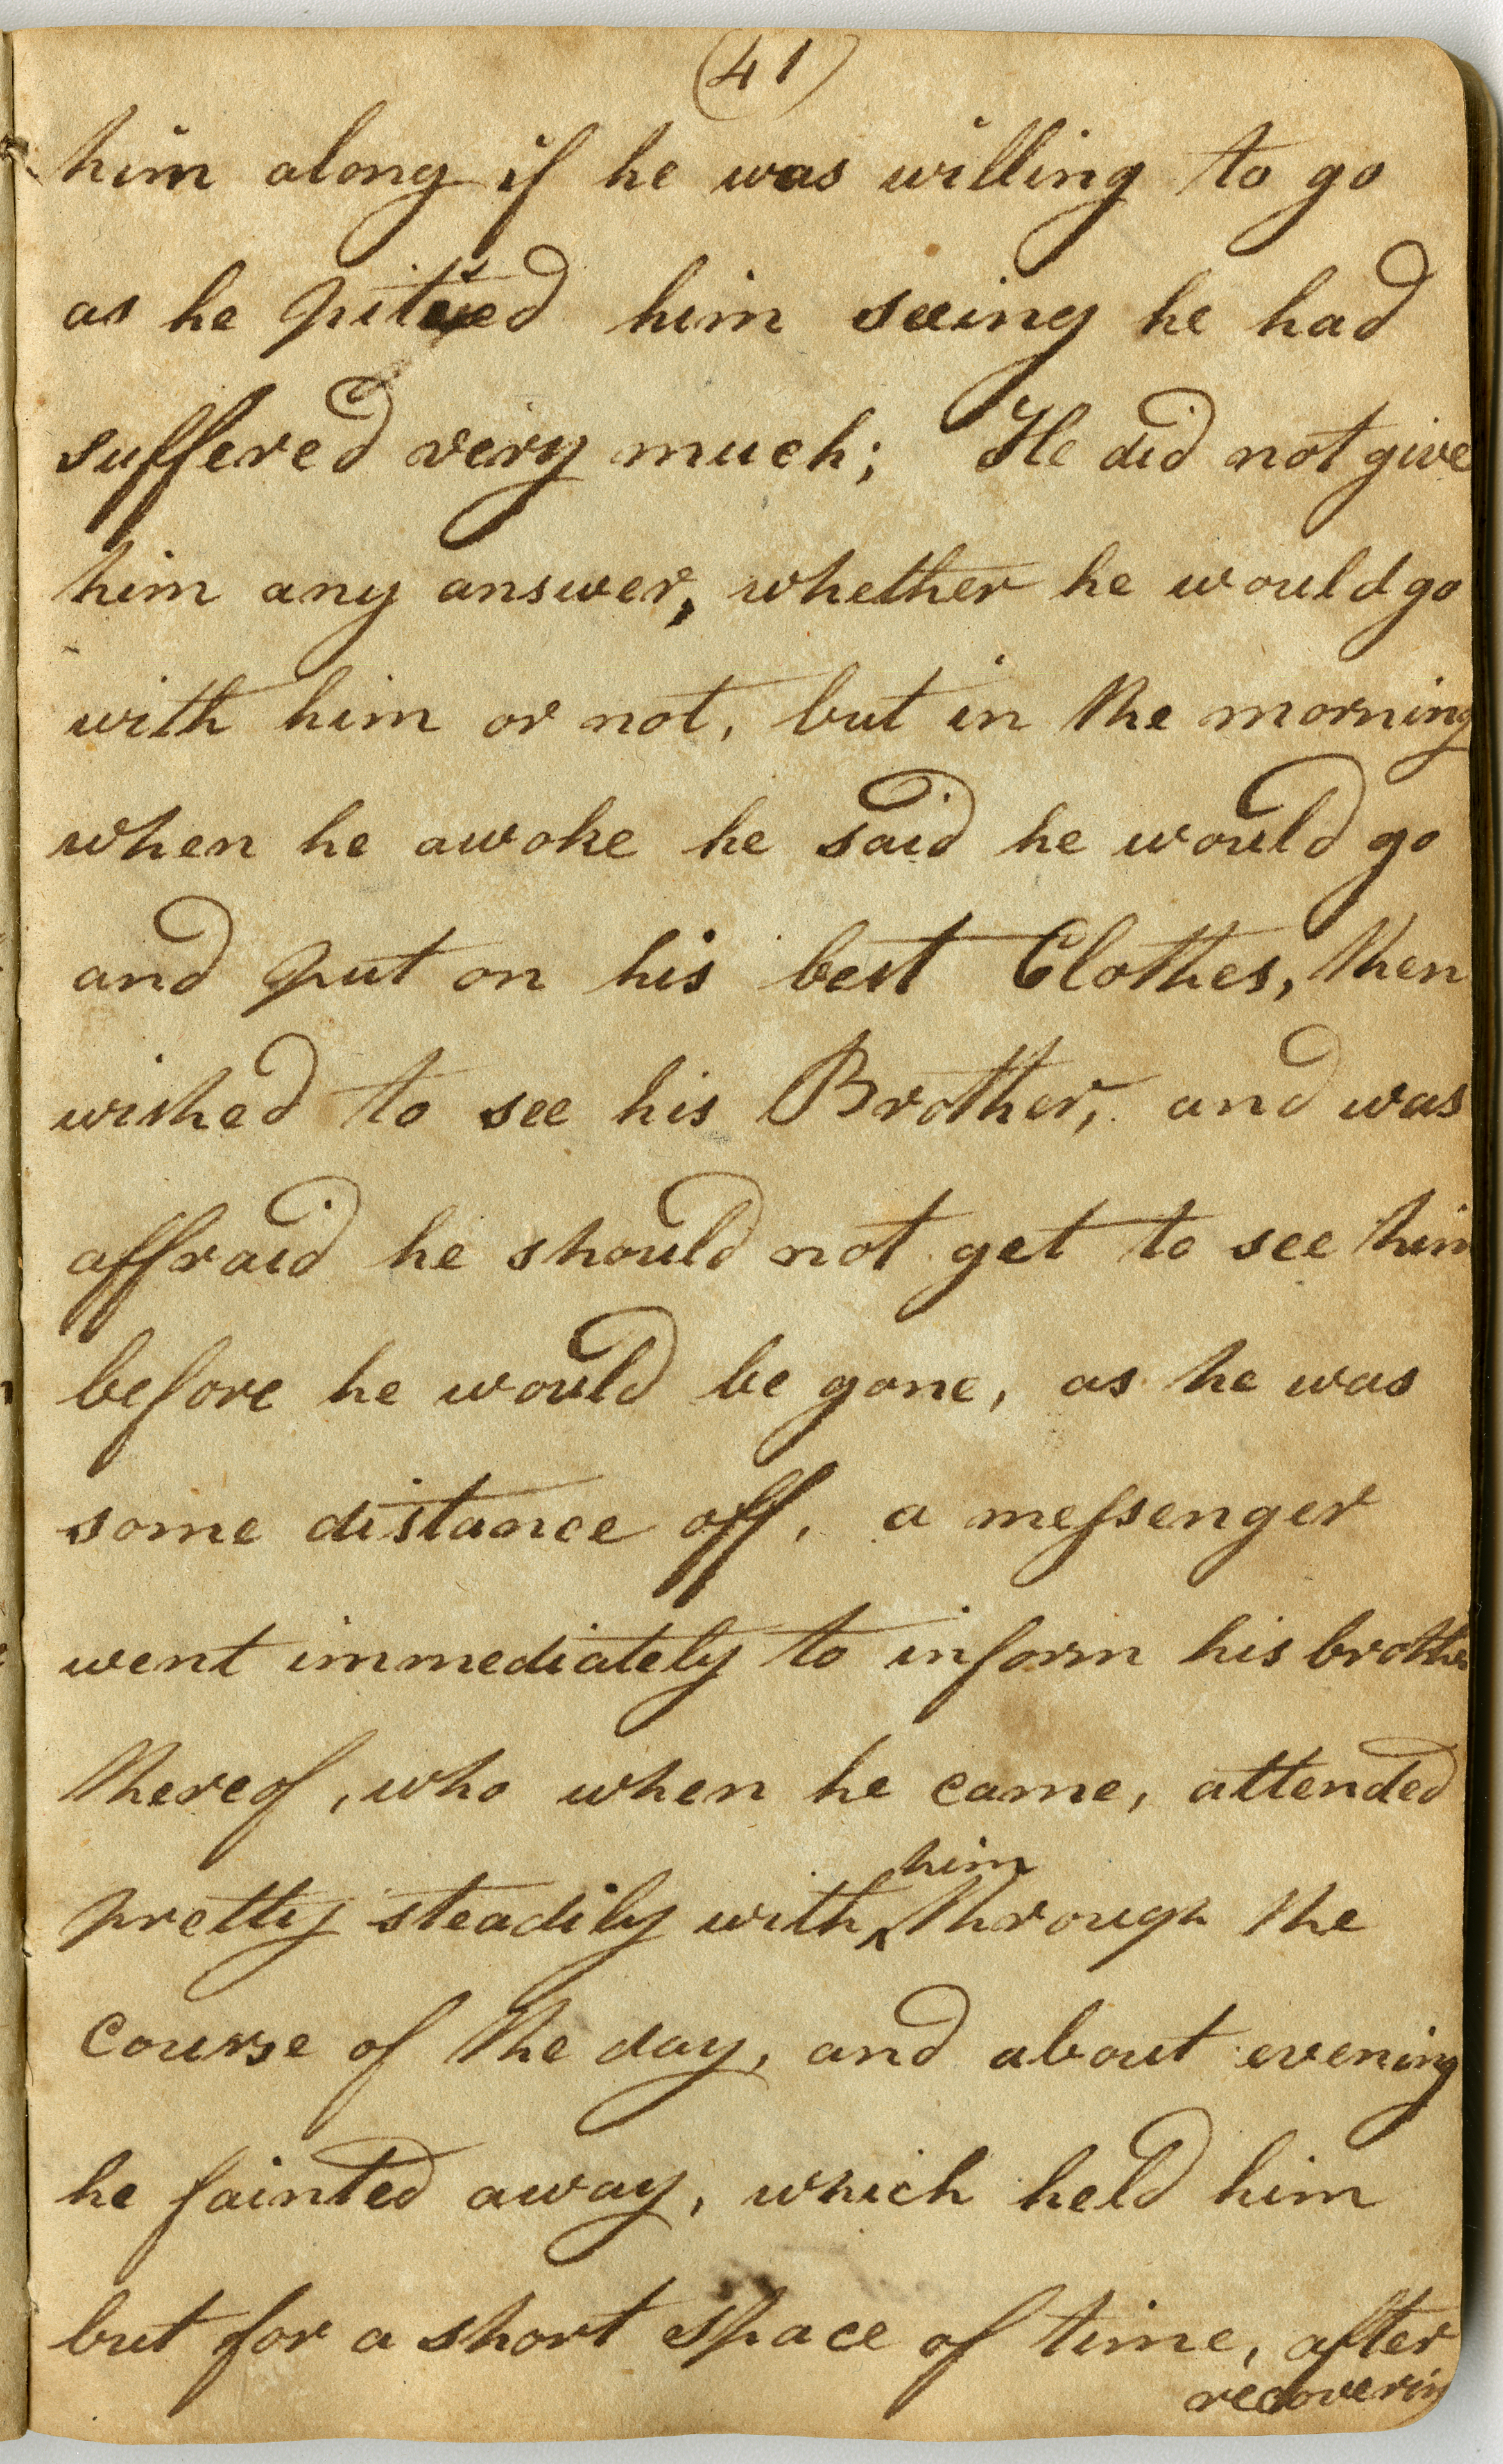 (41)
him along if he was willing to go
as he pitied him seeing he had
suffered very much; He did not give
him any answer, whether he would go
with him or not, but in the morning
when he awoke he said he would go
and put on his best Clothes, then
wished to see his Brother, and was
affraid he should not get to see him
before he would be gone, as he was
some distance off, a meſsenger
went immediately to inform his brother
thereof, who when he came, attended
pretty steadily with ‸him through the
course of the day, and about evening
he fainted away, which held him
but for a short space of time, after
recovering